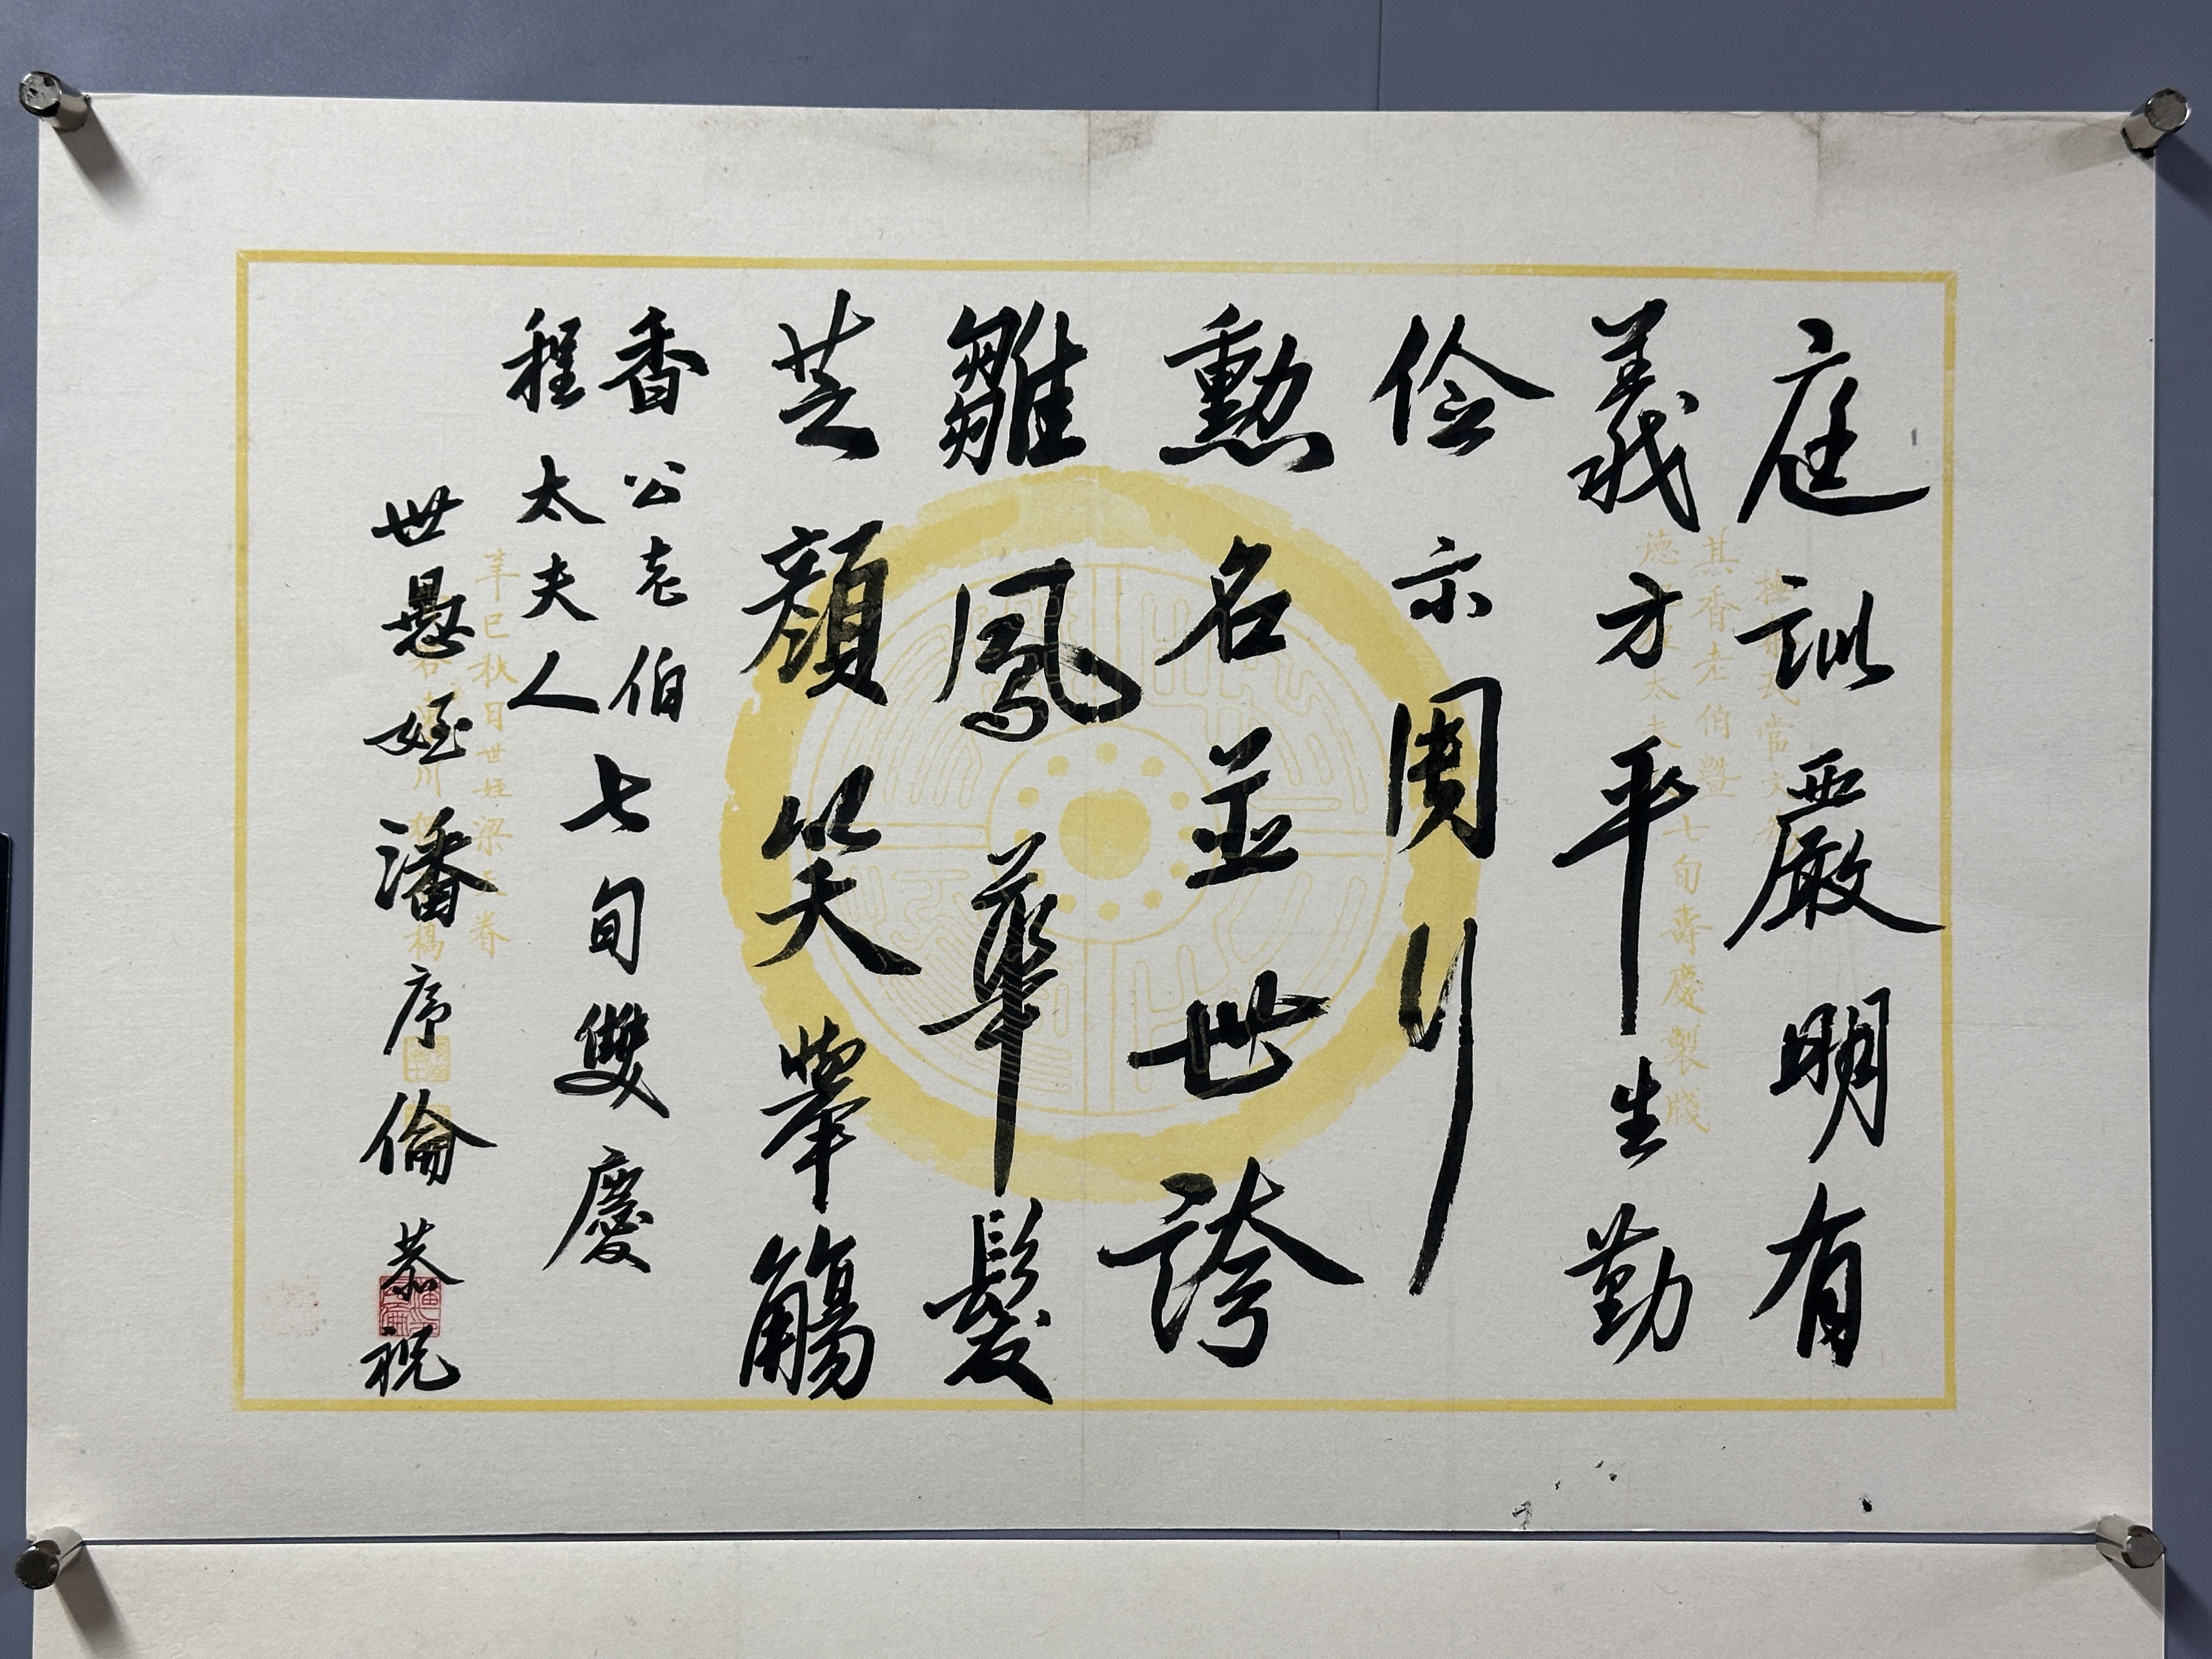 庭訓嚴明有
義方平生勤
儉示周行
勲名並世誇
雛鳳華髮
芝顏笑舉觴
香公老伯
程太夫人
七旬雙慶
世愚姪潘序倫恭祝
其香老伯暨
德
太夫
七旬壽慶製牋
辛巳秋日世姪梁